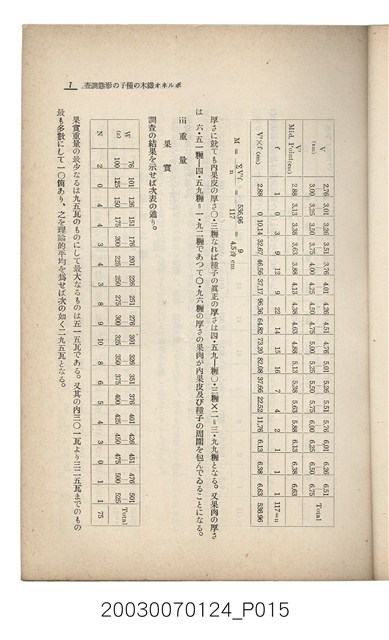 ボルネオ鐵木の種子の形態調査 7
V (cm) 2.76 3.00 3.01 3.25 3.26 3.50 3.51 3.75 3.76 4.00 4.01 4.25 4.26 4.50 4.51 4.75 4.76 5.00 5.01 5.25 5.26 5.50 5.51 5.75 5.76 6.00 6.01 6.25 6.26 6.50 6.51 6.75 Total
Mid. Point(cm) 2.88 3.13 3.38 3.63 3.88 4.13 4.38 4.63 4.88 5.13 5.38 5.63 5.88 6.13 6.38 6.63
f 1 0 3 9 12 9 22 14 15 16 7 4 2 1 1 1 117=n
V'×f (cm) 2.88 0 10.14 32.67 46.56 37.17 96.36 64.82 73.20 82.08 37.66 22.52 11.76 6.13 6.38 6.63 536.96
M = ΣV'f / n = 536.96 / 117 = 4.59 cm
厚さに就ても內果皮の厚さ〇·三糎なれば種子の眞正の厚さは四·五九―(〇·三糎×二)=三·九九糎となる。又果肉の厚さ
は 六·五一糎―四·五九糎=一·九二糎であつて〇·九六糎の厚さの果肉が內果皮及び種子の周圍を包んでゐることになる。
iii 重量
果實
調査の結果を示せば次表の通り。
W (g) 76 100 101 125 126 150 151 175 176 200 201 225 226 250 251 275 276 300 301 325 326 350 351 375 376 400 401 425 426 450 451 475 476 500 501 525 Total
果實重量の最少なるは九五瓦のものにして最大なるものは五一五瓦である。又其の內三〇一瓦より三二五瓦までのもの
最も多數にして一〇箇あり、之を理論的平均を爲せば次の如く二九五瓦となる。
20030070124_P015